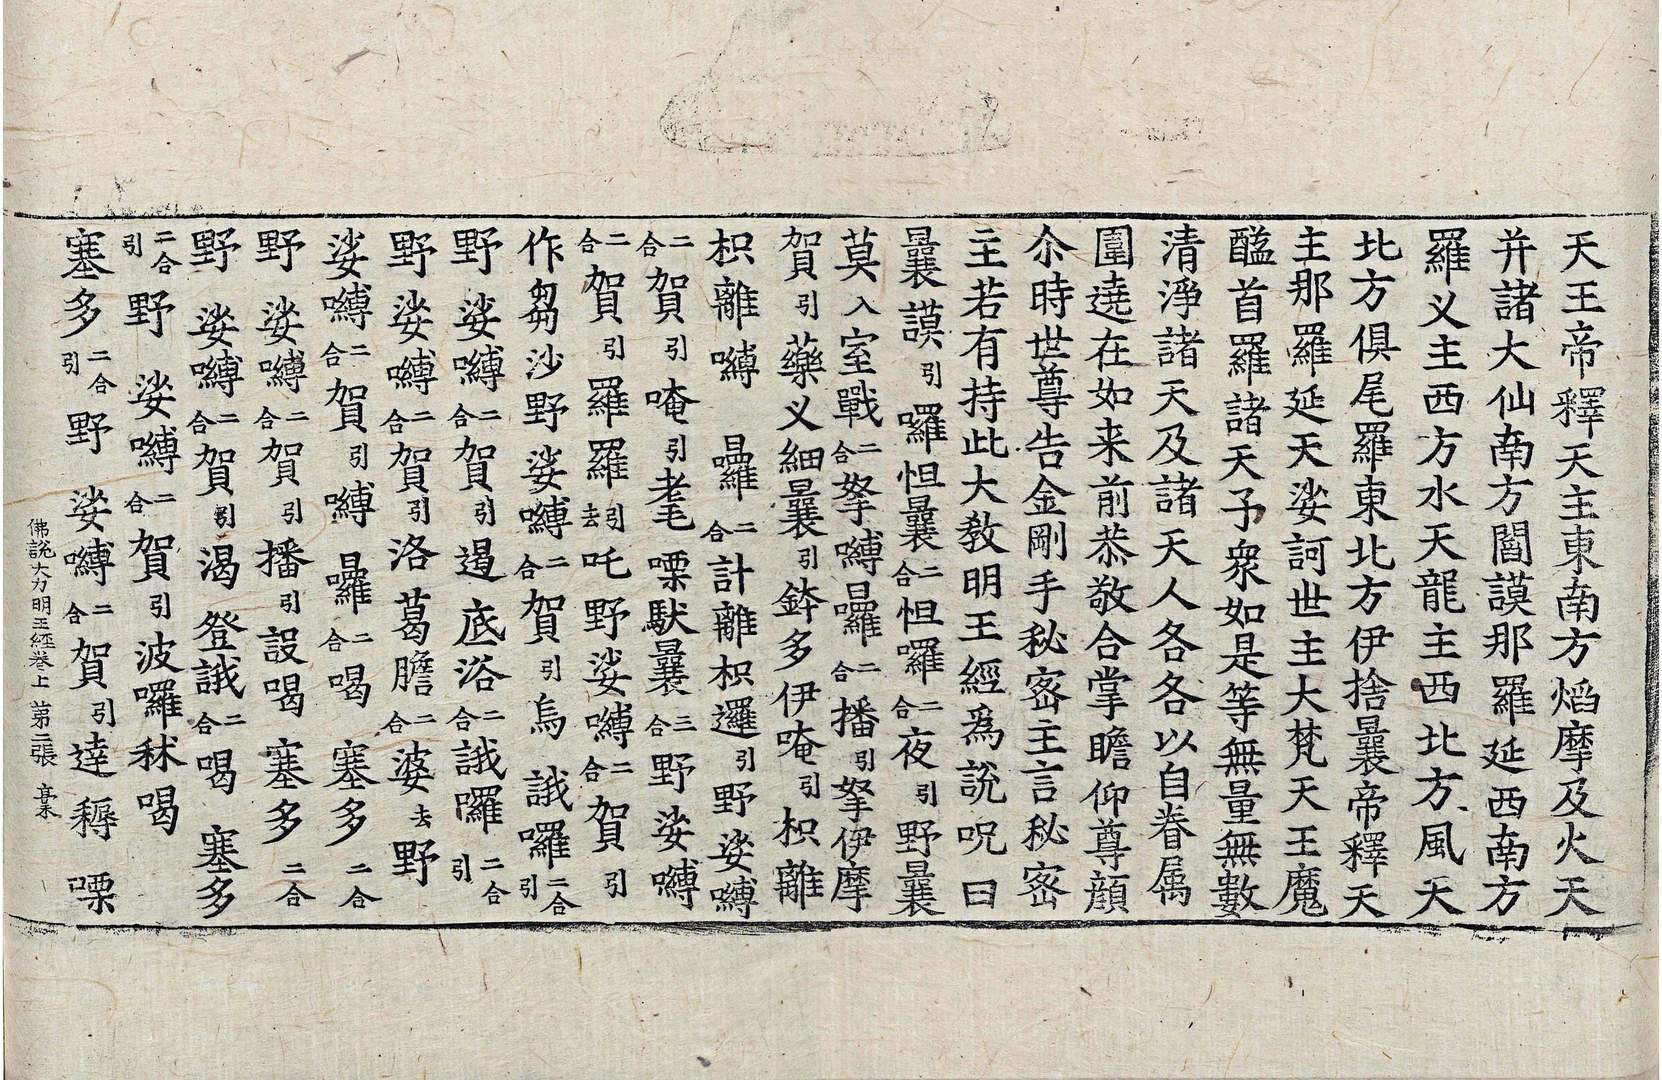 天王帝釋天主東南方焰摩及火天
并諸大仙南方閻謨那羅延西南方
羅义主西方水天龍主西北方風天
北方俱尾羅東北方伊捨曩帝釋天
主那羅延天娑訶世主大梵天王魔
醯首羅諸天子衆如是等無量無數
清淨諸天及諸天人各各以自眷属
圍遶在如来前恭敬合掌瞻仰尊顔
尒時世尊告金剛手秘密主言秘密
主若有持此大教明王經爲説呪曰
曩謨引囉怛曩二合怛囉二合夜引野曩
莫入室戰二合拏嚩曩囉二合播引拏伊摩
賀引藥义細曩引鉢多伊唵引枳離
枳離嚩囉二合計離枳邏引野娑嚩
二合賀引唵引老毛㗚馱曩三合野娑嚩
二合賀引羅羅引去吒野娑嚩二合賀引
作芻沙野娑嚩二合賀引烏誐囉二合引
野娑嚩二合賀引遏底浴二合誐囉二合引
野娑嚩二合賀引洛葛膽二合婆去野
娑嚩二合賀引嚩囉二合喝塞多二合
野娑嚩二合賀引播引設喝塞多二合
野娑嚩二合賀引渴登誐二合喝塞多
二合引野娑嚩二合賀引波囉秫喝
塞多二合引野娑嚩二合賀引達耨㗚
佛説大力明王經卷上 苐二張 槀